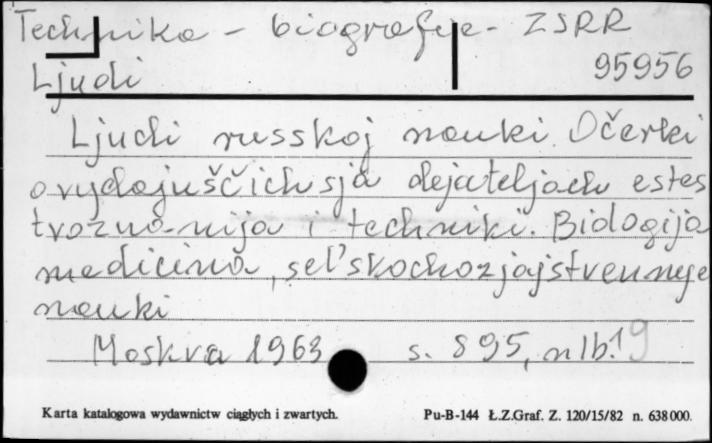 Technika - biografje - ZSRR
95956
Ljudi
Ljudi russkoj nauki. Očerki
o vydajuščichsja dejateljach estes
tvoznanija i techniki. Biologija
medicina, sel'skochozjajstvennye
nauki
Moskva 1963 s. 895, nlb. 1 9
Karta katalogowa wydawnictw ciągłych i zwartych. Pu-B-144 Ł.Z.Graf. Z. 120/15/82 n. 638 000.